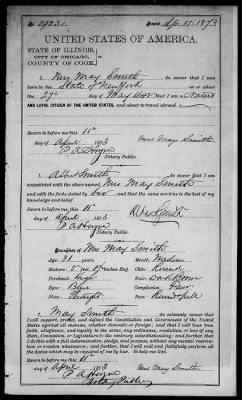 No. 29231. Issued Ap. 15. 1873
UNITED STATES OF AMERICA.
STATE OF ILLINOIS,
CITY OF CHICAGO,
COUNTY OF COOK,
I, Mrs May Smith do swear that I was
born in the State of New York on or about the
27th day of that I am a
AND LOYAL CITIZEN OF THE UNITED STATES, and about to travel abroad.
Sworn to before me this 11th
day of April 1873 Mrs May Smith
P A Hoyne
Notary Public.
I, Albro Smith do swear that I am
acquainted with the above named Mrs May Smith and
with the facts stated by her, and that the same are true to the best of my knowledge
and belief.
Sworn to before me this 11th
day of April 1873
P A Hoyne
Notary Public.
Description of Mrs May Smith
Age: 31 years. Mouth: Medium
Stature: 5 feet inches Eng. Chin: Round
Forehead: High Hair: Dark Brown
Eyes: Blue Complexion: Fair
Nose: Straight Face: Round & full
I, May Smith do solemnly swear that
I will support, protect, and defend the Constitution and Government of the United
States against all enemies, whether domestic or foreign; and that I will bear true
faith, allegiance, and loyalty to the same, any ordinance, resolution, or law of any
State, Convention, or Legislature to the contrary notwithstanding; and further, that
I do this with a full determination, pledge, and purpose, without any mental reservation
or evasion whatsoever; and further, that I will well and faithfully perform all
the duties which may be required of me by law. So help me God.
Sworn to before me this 11th
day of April 1873
P A Hoyne Mrs May Smith
Notary Public